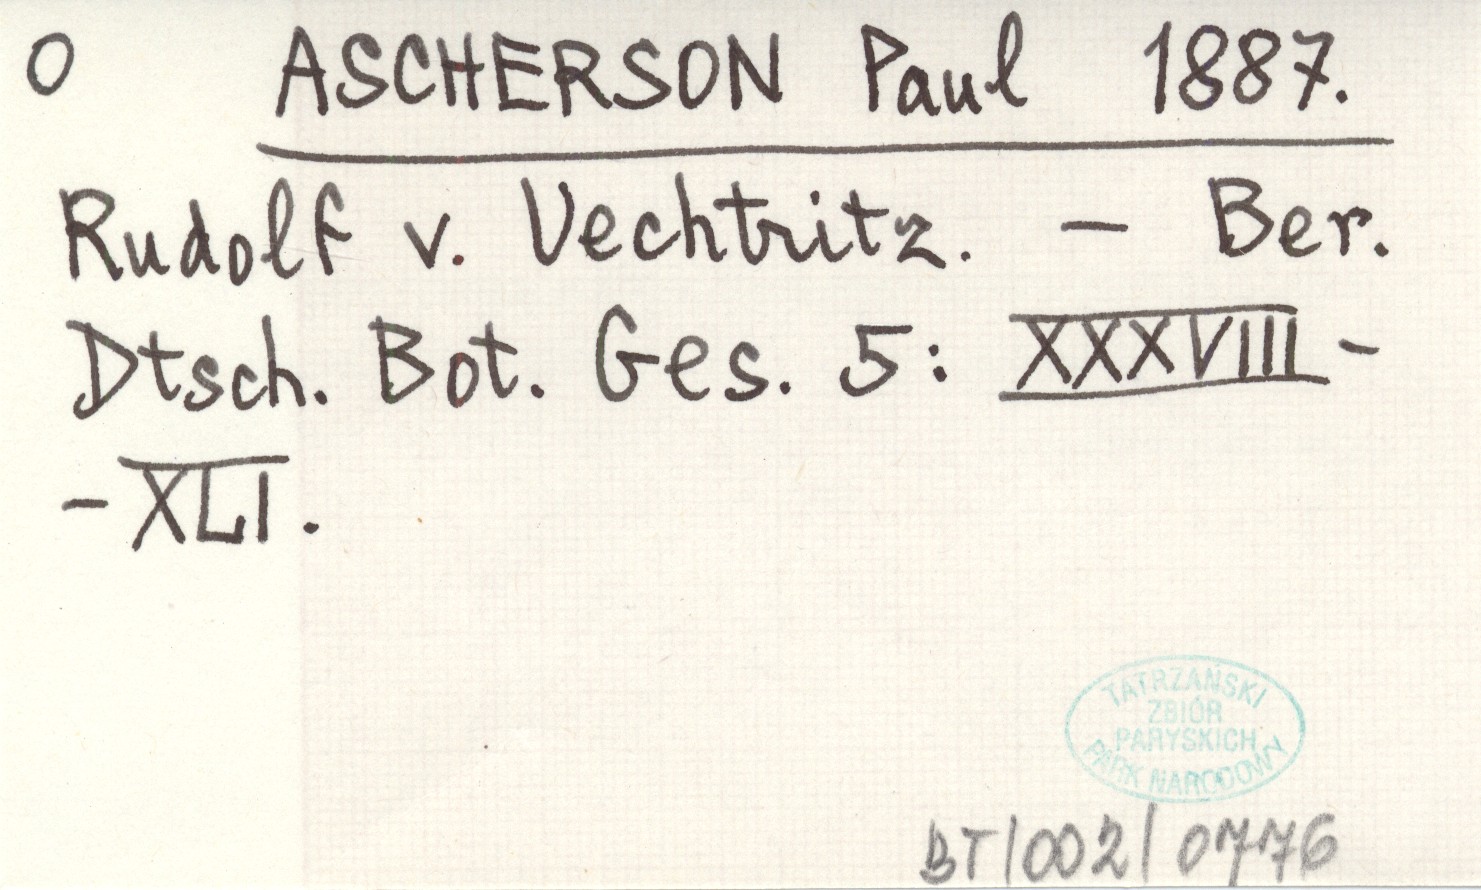 O ASCHERSON Paul 1887.
Rudolf v. Uechtritz. — Ber.
Dtsch. Bot. Ges. 5: XXXVIII -
- XLI.
TATRZAŃSKI
ZBIÓR
PARYSKICH
PARK NARODOWY
BT/002/0776